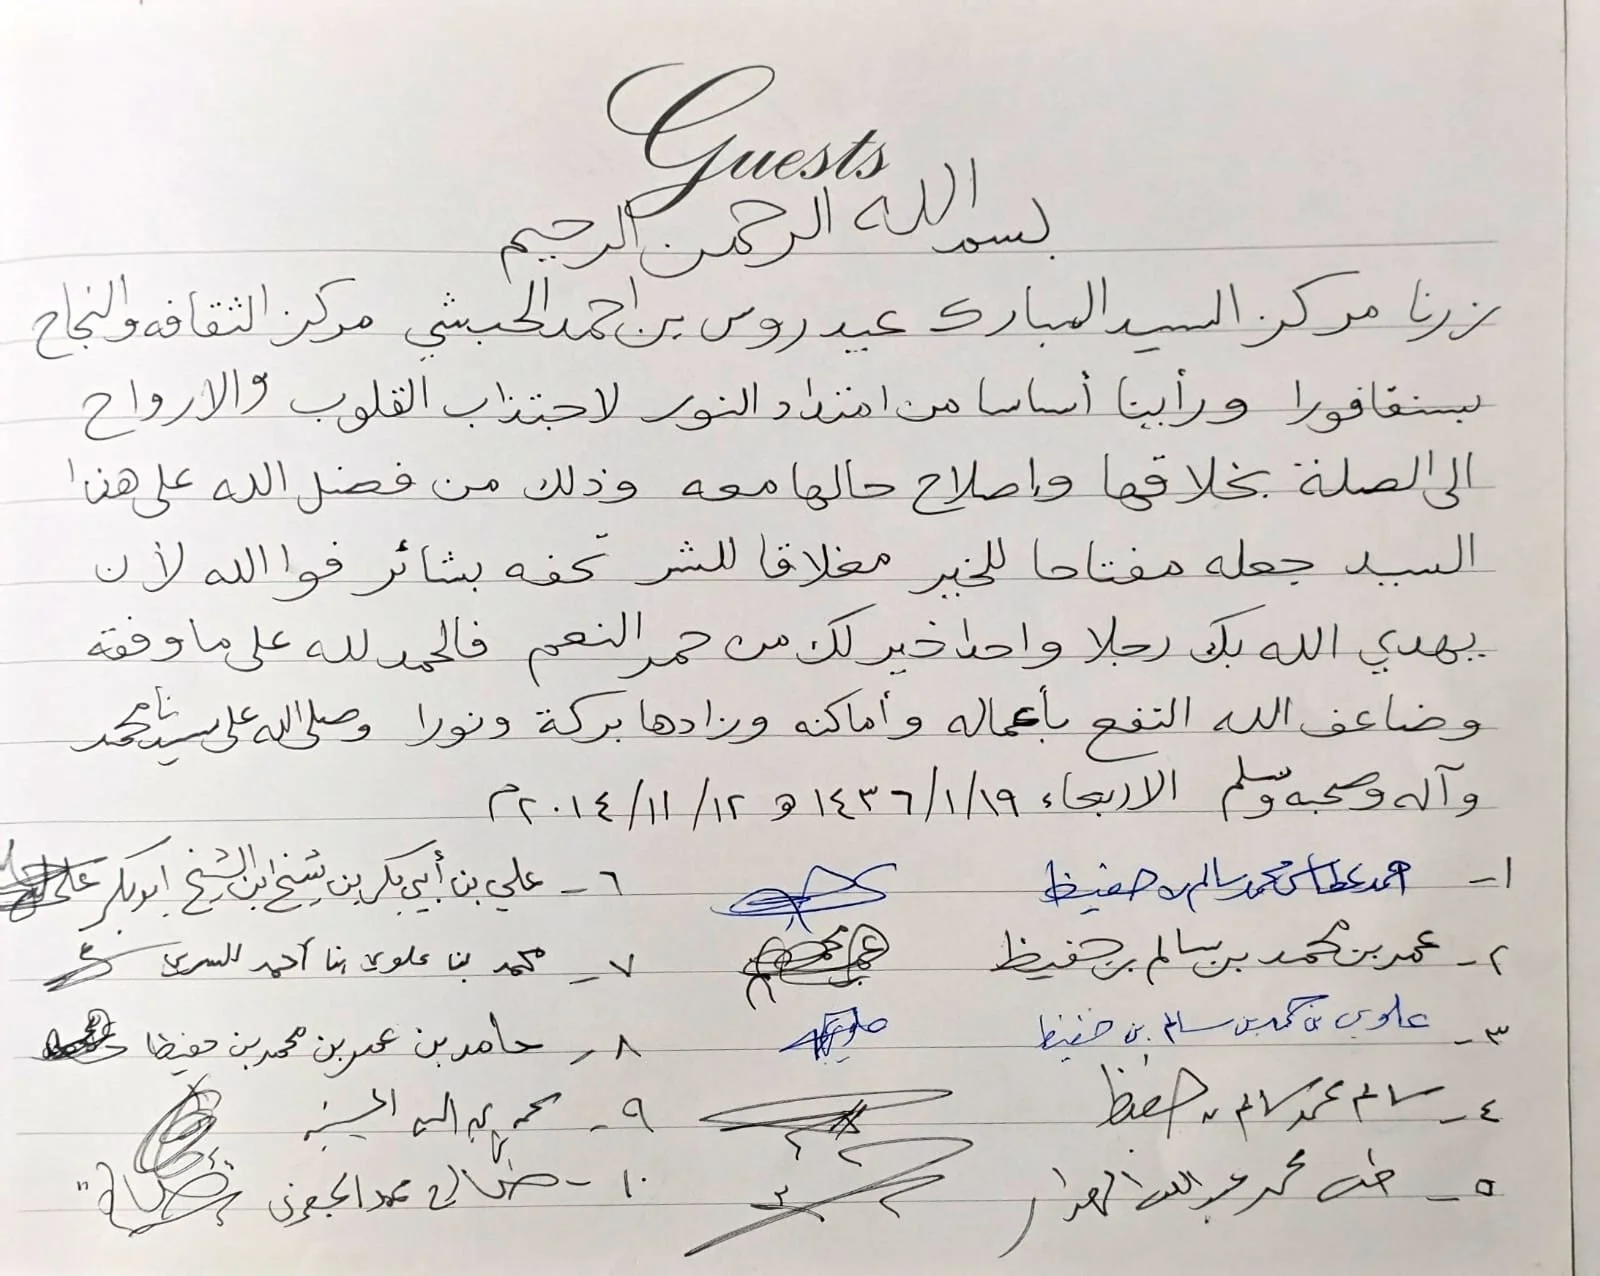 Guests
بسم الله الرحمن الرحيم
زرنا مركز السيد المبارك عيدروس بن احمد الحبشي مركز الثقافه والنجاح
بسنقافورا ورأينا أساسا من امتداد النور لاجتذاب القلوب والارواح
الى الصلة بخلاقها وإصلاح حالها معه وذلك من فضل الله على هذا
السيد جعله مفتاحا للخير مغلاقا للشر تحفه بشائر فوا الله لأن
يهدي الله بك رجلا واحدا خير لك من حمر النعم فالحمد لله على ما وفقه
وضاعف الله النفع بأعماله وأماكنه وزادها بركة ونورا وصلى الله على سيدنا محمد
وآله وصحبه وسلم الاربعاء ١٤٣٦/١/١٩ ه ٢٠١٤/١١/١٢م
١- محمد سالم بن حفيظ ٦- علي بن أبي بكر بن شيخ ابن الشيخ ابوبكر
٢- عمر بن محمد بن سالم بن حفيظ ٧- محمد بن علوي بن أحمد
٣- علوي بن محمد بن سالم بن حفيظ ٨- حامد بن عمر بن محمد بن حفيظ
٤- سالم عمر سالم بن حفيظ ٩-
٥- طه محمد عبدالله الهدار ١٠- محمد الجعفري